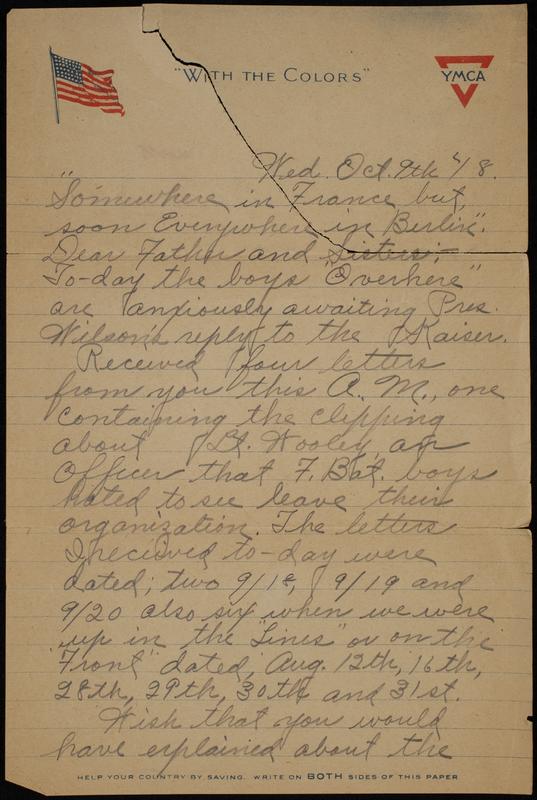 "WITH THE COLORS"
YMCA
Wed. Oct. 9th '18.
"Somewhere in France but,
soon Everywhere in Berlin".
Dear Father and Sisters:-
To-day the boys "Overhere"
are anxiously awaiting Pres.
Wilson's reply to the Kaiser.
Received four letters
from you this A. M., one
containing the clipping
about Lt. Wooley, an
officer that F. Bat. boys
hated to see leave their
organization. The letters
I recieved to-day were
dated; two 9/18, 9/19 and
9/20 also six when we were
up in the "Lines" or on the
"Front" dated, Aug. 12th, 16th,
28th, 29th, 30th and 31st.
Wish that you would
have explained about the
HELP YOUR COUNTRY BY SAVING. WRITE ON BOTH SIDES OF THIS PAPER